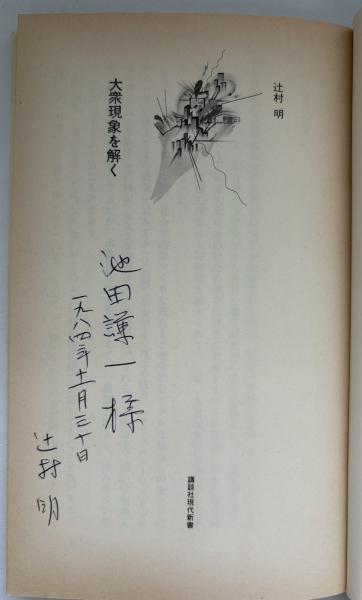 辻村 明
大衆現象を解く
講談社現代新書
池田謙一様
一九八四年十一月三十日
辻村 明